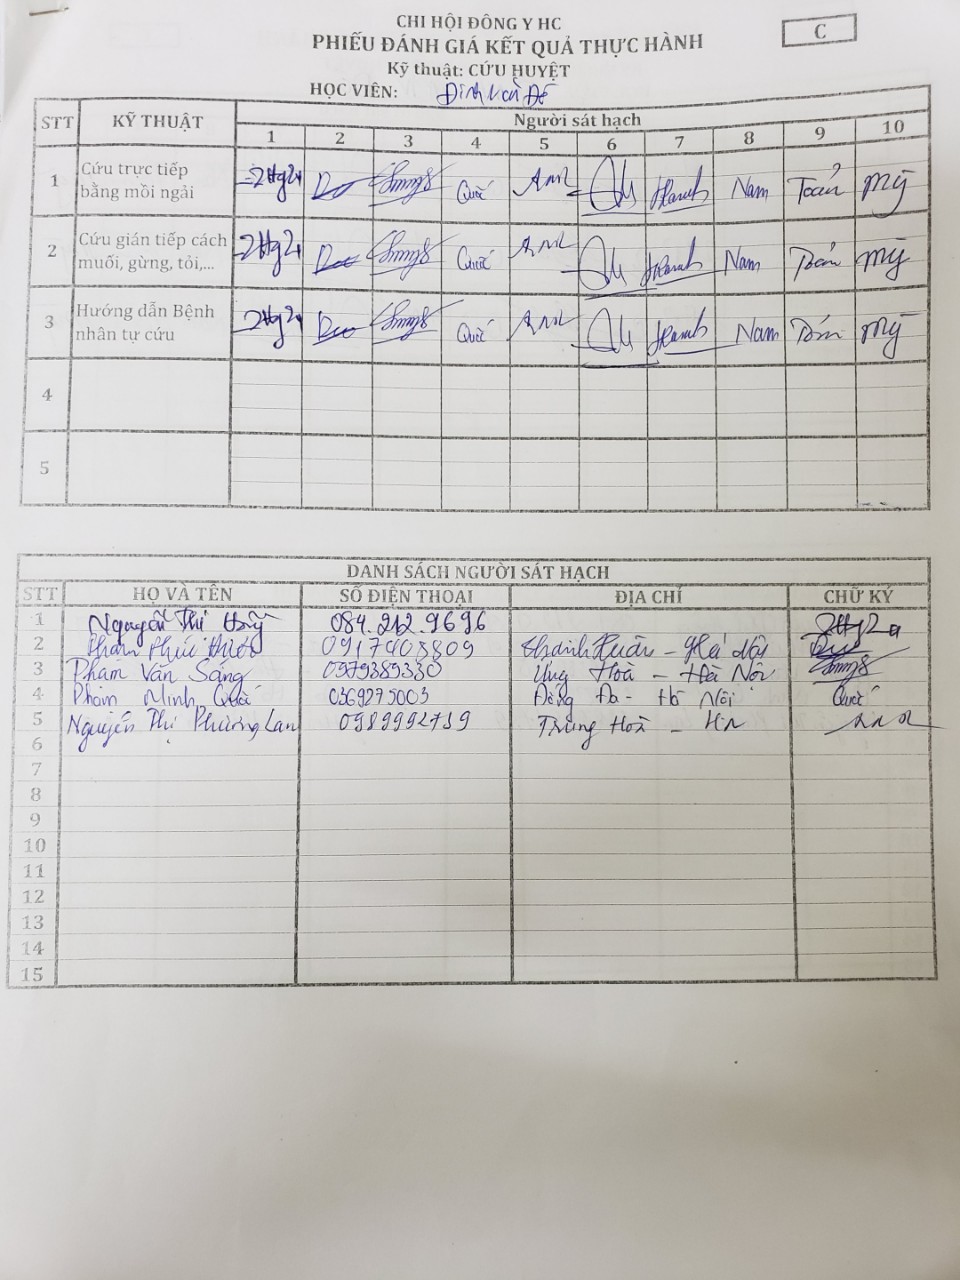 CHI HỘI ĐÔNG Y HC
C
PHIẾU ĐÁNH GIÁ KẾT QUẢ THỰC HÀNH
Kỹ thuật: CỨU HUYỆT
HỌC VIÊN: Đinh Văn Đô
STT KỸ THUẬT Người sát hạch
1 2 3 4 5 6 7 8 9 10
1 Cứu trực tiếp bằng mồi ngải Quốc Hanh Nam Toán Mỹ
2 Cứu gián tiếp cách muối, gừng, tỏi,... Quốc Hanh Nam Toán Mỹ
3 Hướng dẫn Bệnh nhân tự cứu Quốc Hanh Nam Toán Mỹ
4
5
DANH SÁCH NGƯỜI SÁT HẠCH
STT HỌ VÀ TÊN SỐ ĐIỆN THOẠI ĐỊA CHỈ CHỮ KÝ
1 Nguyễn Thị 084.212.9696
2 Phạm Phúc 0917408809 Thanh Xuân - Hà Nội
3 Phạm Văn Sáng 0979389330 Ứng Hoà - Hà Nội
4 Phạm Minh Quốc 0369275003 Đống Đa - Hà Nội Quốc
5 Nguyễn Thị Phương Lan 0989992739 Trung Hoà - HN
6
7
8
9
10
11
12
13
14
15